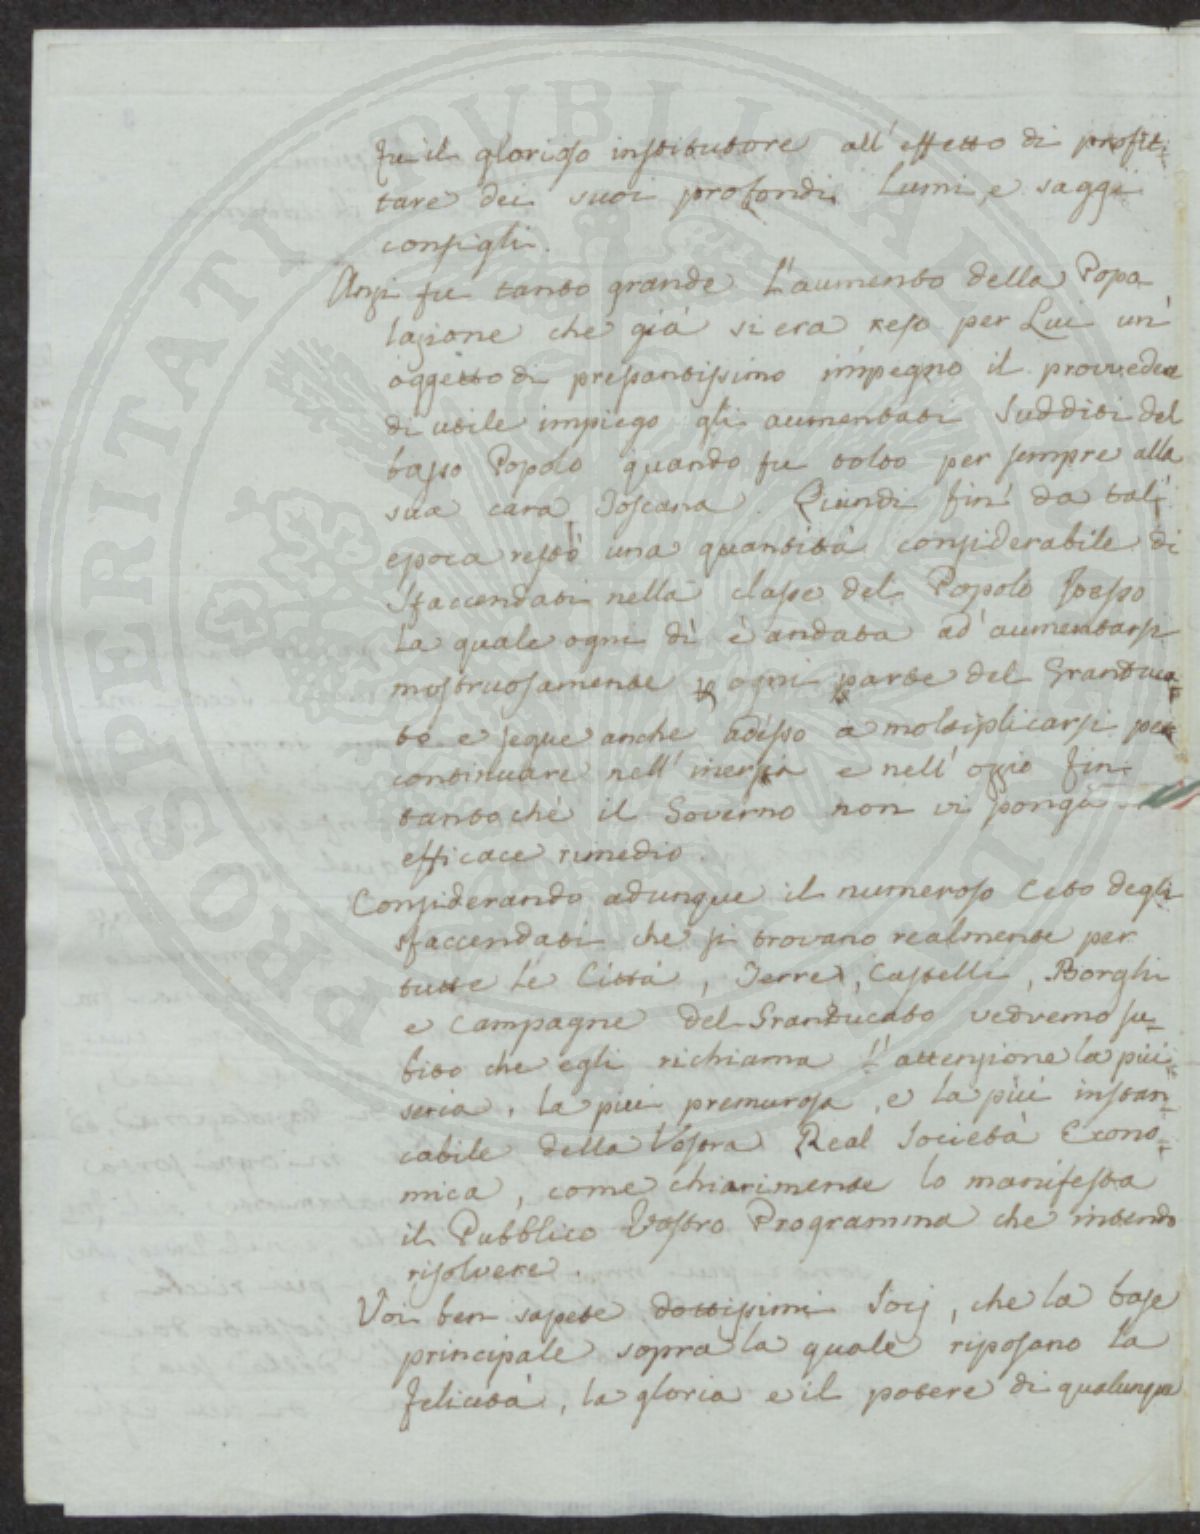 fu il glorioso institutore all'effetto di profit-
tare dei suoi profondi Lumi, e saggi
consigli.
Anzi fu tanto grande L'aumento della Popo-
lazione che già si era reso per Lui un'
oggetto di pressantissimo impegno il provvedere
di utile impiego gli aumentati Sudditi del
basso Popolo quando fu tolto per sempre alla
sua cara Toscana. Quindi fin' da tal'
epoca restò una quantità considerabile di
sfaccendati nella classe del Popolo stesso
La quale ogni dì è andata ad' aumentarsi
mostruosamente ogni parte del Granduca-
to e segue anche adesso a moltiplicarsi per
continuare nell'inerzia e nell'ozio fin
tanto chè il Governo non vi ponga
efficace rimedio.
Considerando adunque il numeroso Ceto degli
sfaccendati che si trovano realmente per
tutte Le Città, Terre, Castelli, Borghi
e Campagne del Granducato vedremo su-
bito che egli richiama L'attenzione la più
seria, La più premurosa, e La più instan-
cabile della Vostra Real Società Econo-
mica, come chiarimente lo manifesta
il Pubblico Vostro Programma che intendo
risolvere.
Voi ben sapete dottissimi Socj, che la base
principale sopra la quale riposano La
felicità, la gloria e il potere di qualunque
PROSPERITATI PUBLICAE AU